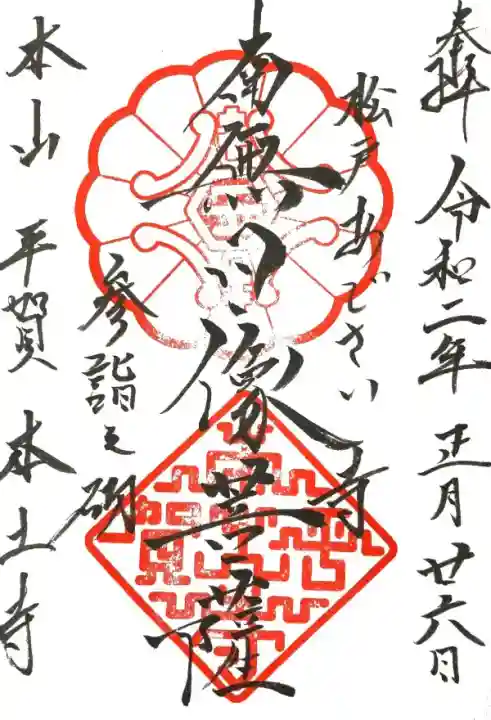 奉拝 令和二年 正月 廿六日
松戸あじさい寺
南無日像菩薩
参詣之砌
本山 平賀 本土寺